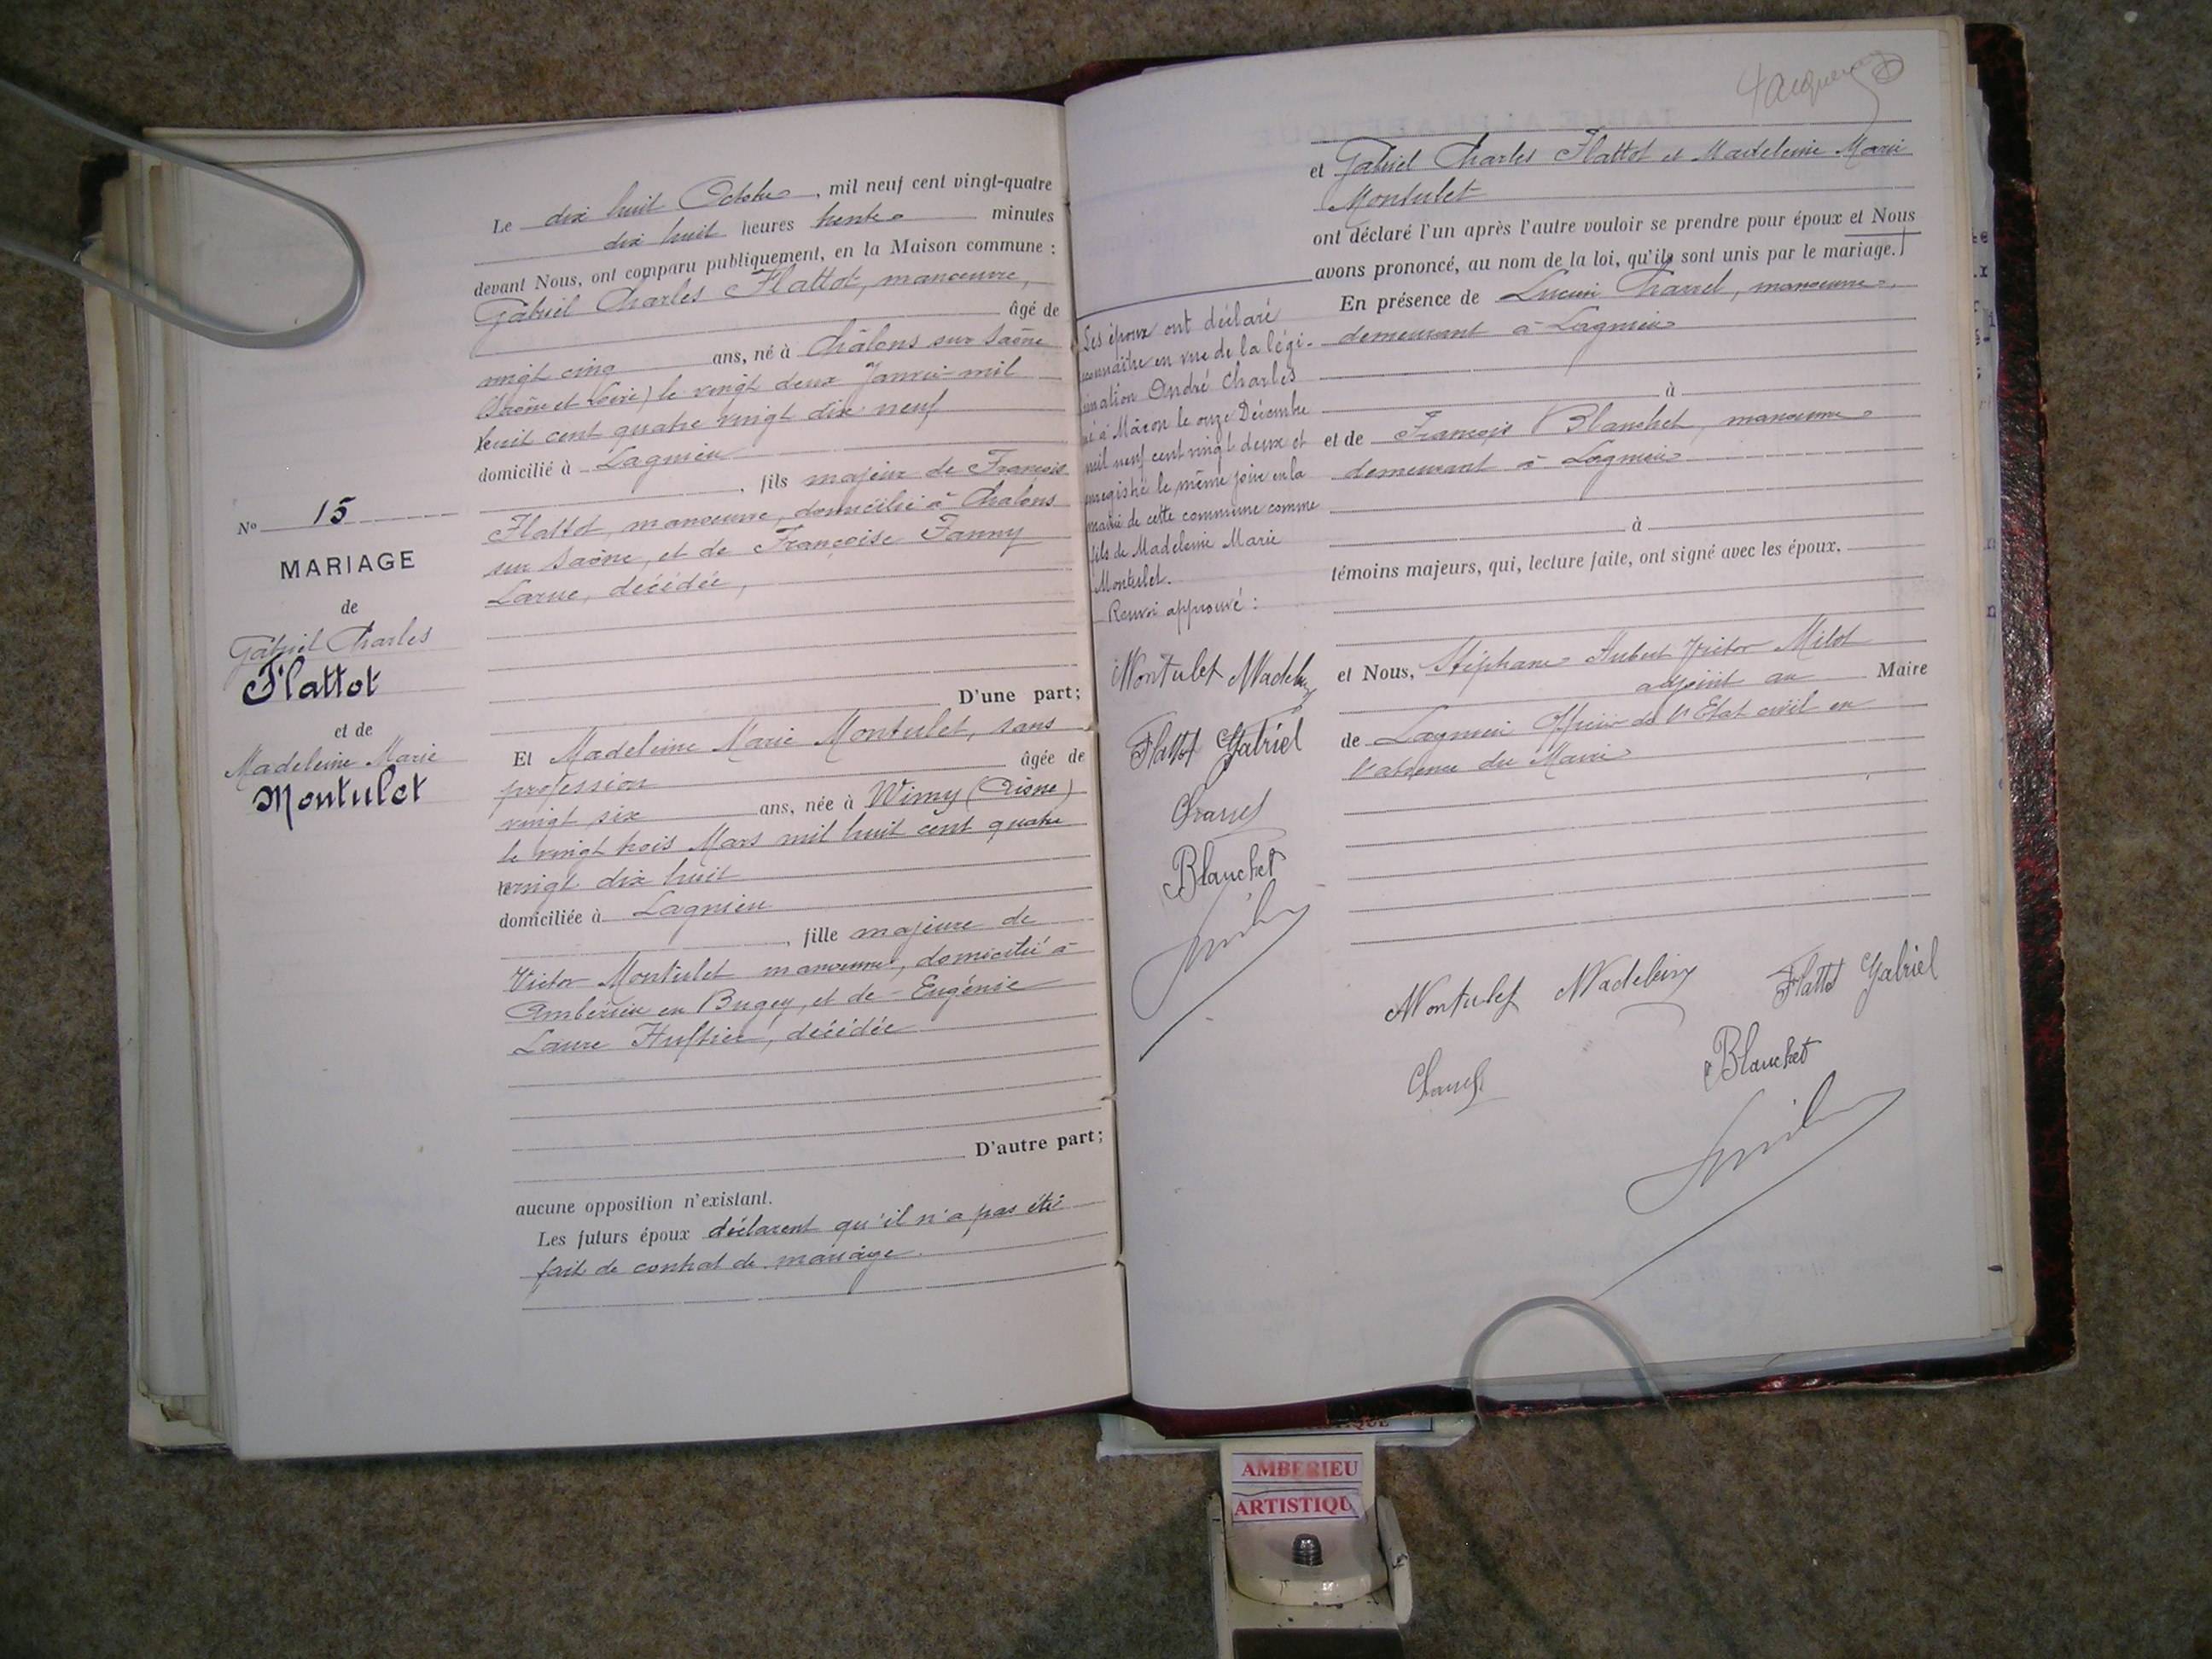 Le dix huit Octobre, mil neuf cent vingt-quatre
dix huit heures trente minutes
devant Nous, ont comparu publiquement, en la Maison commune :
Gabriel Charles Flattot, manoeuvre,
âgé de
vingt cinq ans, né à Châlons sur Saône
(Saône et Loire) le vingt deux Janvier mil
huit cent quatre vingt dix neuf
domicilié à Lagnieu
, fils majeur de François
Flattot, manoeuvre, domicilié à Chalons
sur Saône, et de Françoise Fanny
Larue, décédée,
D'une part;
No 15
MARIAGE
de
Gabriel Charles
Flattot
et de
Madeleine Marie
Montulet
Et Madeleine Marie Montulet, sans
profession âgée de
vingt six ans, née à Wimy (Aisne)
le vingt trois Mars mil huit cent quatre
vingt dix huit
domiciliée à Lagnieu
, fille majeure de
Victor Montulet manoeuvre, domicilié à
Ambérieu en Bugey, et de Eugénie
Laure , décédée
D'autre part;
aucune opposition n'existant.
Les futurs époux déclarent qu'il n'a pas été
fait de contrat de mariage.
et Gabriel Charles Flattot et Madeleine Marie
Montulet
ont déclaré l'un après l'autre vouloir se prendre pour époux et Nous
avons prononcé, au nom de la loi, qu'ils sont unis par le mariage.
Les époux ont déclaré
reconnaître en vue de la légi-
timation André Charles
né à Mâcon le onze Décembre
mil neuf cent vingt deux et
enregistré le même jour en la
mairie de cette commune comme
fils de Madeleine Marie
Montulet.
Renvoi approuvé :
Montulet Madeleine
Flattot Gabriel
Charrel
Blanchet
En présence de Lucien Charrel, manoeuvre,
demeurant à Lagnieu
à
et de François Blanchet, manoeuvre
demeurant à Lagnieu
à
témoins majeurs, qui, lecture faite, ont signé avec les époux,
et Nous, Stéphane Victor Milot
adjoint au Maire
de Lagnieu Officier de l'Etat civil en
l'absence du Maire
Montulet Madeleine Flattot Gabriel
Charrel Blanchet
AMBERIEU
ARTISTIQU